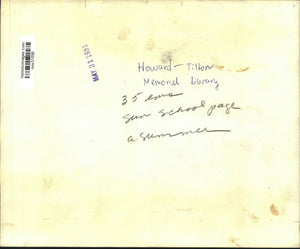 MAY 31 1951
Howard-Tilton
Memorial Library
35 ems
Sun School page
a summer